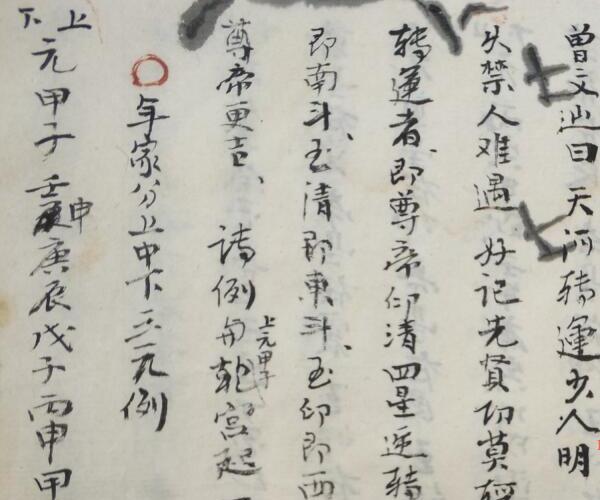 曾文辿曰天河转運少人明
久禁人难遇好记先贤切莫轻
转運者、即尊帝仰清四星逆转
即南斗、玉清即東斗、玉仰即西
尊帝更吉、
诗例于乾宫起
上元甲子
年家分上中下三元例
上下
元甲子壬申庚辰戊子丙申甲